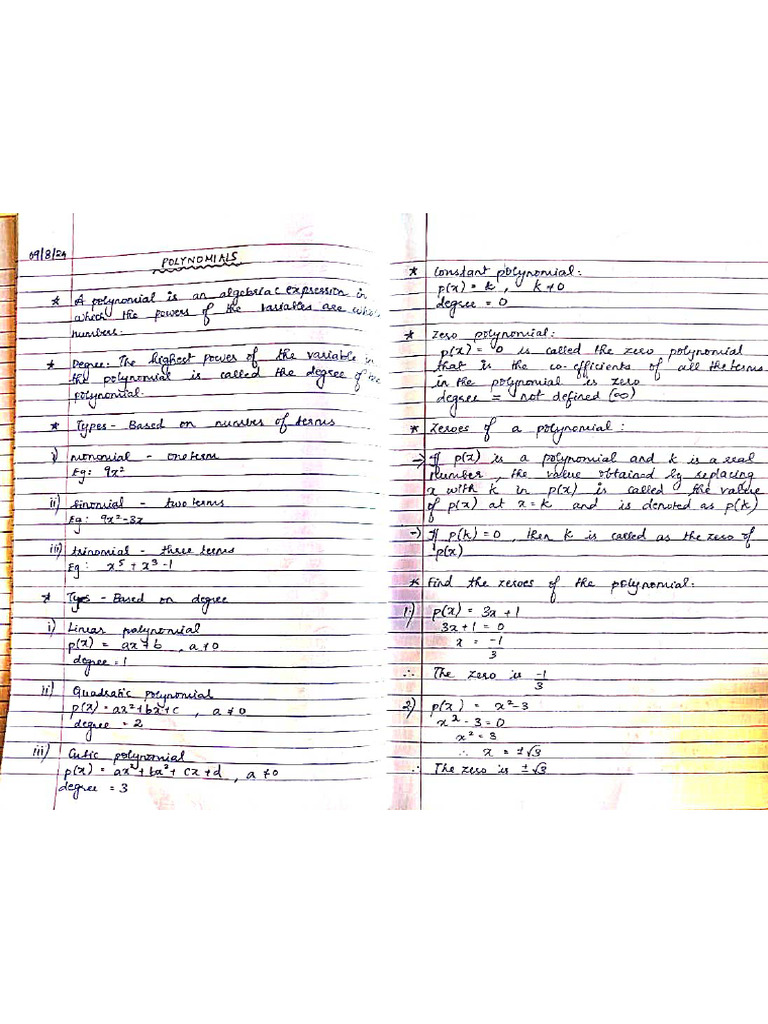 09/8/24
POLYNOMIALS
* A polynomial is an algebriac expression in
which the powers of the variables are whole
numbers.
* Degree: The highest power of the variable in
the polynomial is called the degree of the
polynomial.
* Types - Based on number of terms
i) monomial - one term
Eg: 9x²
ii) binomial - two terms
Eg: 9x²-3x
iii) trinomial - three terms
Eg: x⁵ + x³ - 1
* Types - Based on degree
i) Linear polynomial
p(x) = ax+b , a≠0
degree = 1
ii) Quadratic polynomial
p(x) = ax²+bx+c , a ≠0
degree = 2
iii) Cubic polynomial
p(x) = ax³+bx²+ cx+d , a ≠0
degree = 3
* Constant polynomial:
p(x) = k , k≠0
degree = 0
* Zero polynomial:
p(x) = 0 is called the zero polynomial
that is the co-efficients of all the terms
in the polynomial is zero
degree = not defined (∞)
* Zeroes of a polynomial:
→ If p(x) is a polynomial and k is a real
number, the value obtained by replacing
x with k in p(x) is called the value
of p(x) at x=k and is denoted as p(k)
→ If p(k)=0 , then k is called as the zero of
p(x)
* Find the zeroes of the polynomial:
1) p(x) = 3x + 1
3x+1 = 0
x = -1/3
∴ The zero is -1/3
2) p(x) = x²-3
x² - 3 = 0
x² = 3
∴ x = ±√3
∴ The zero is ±√3